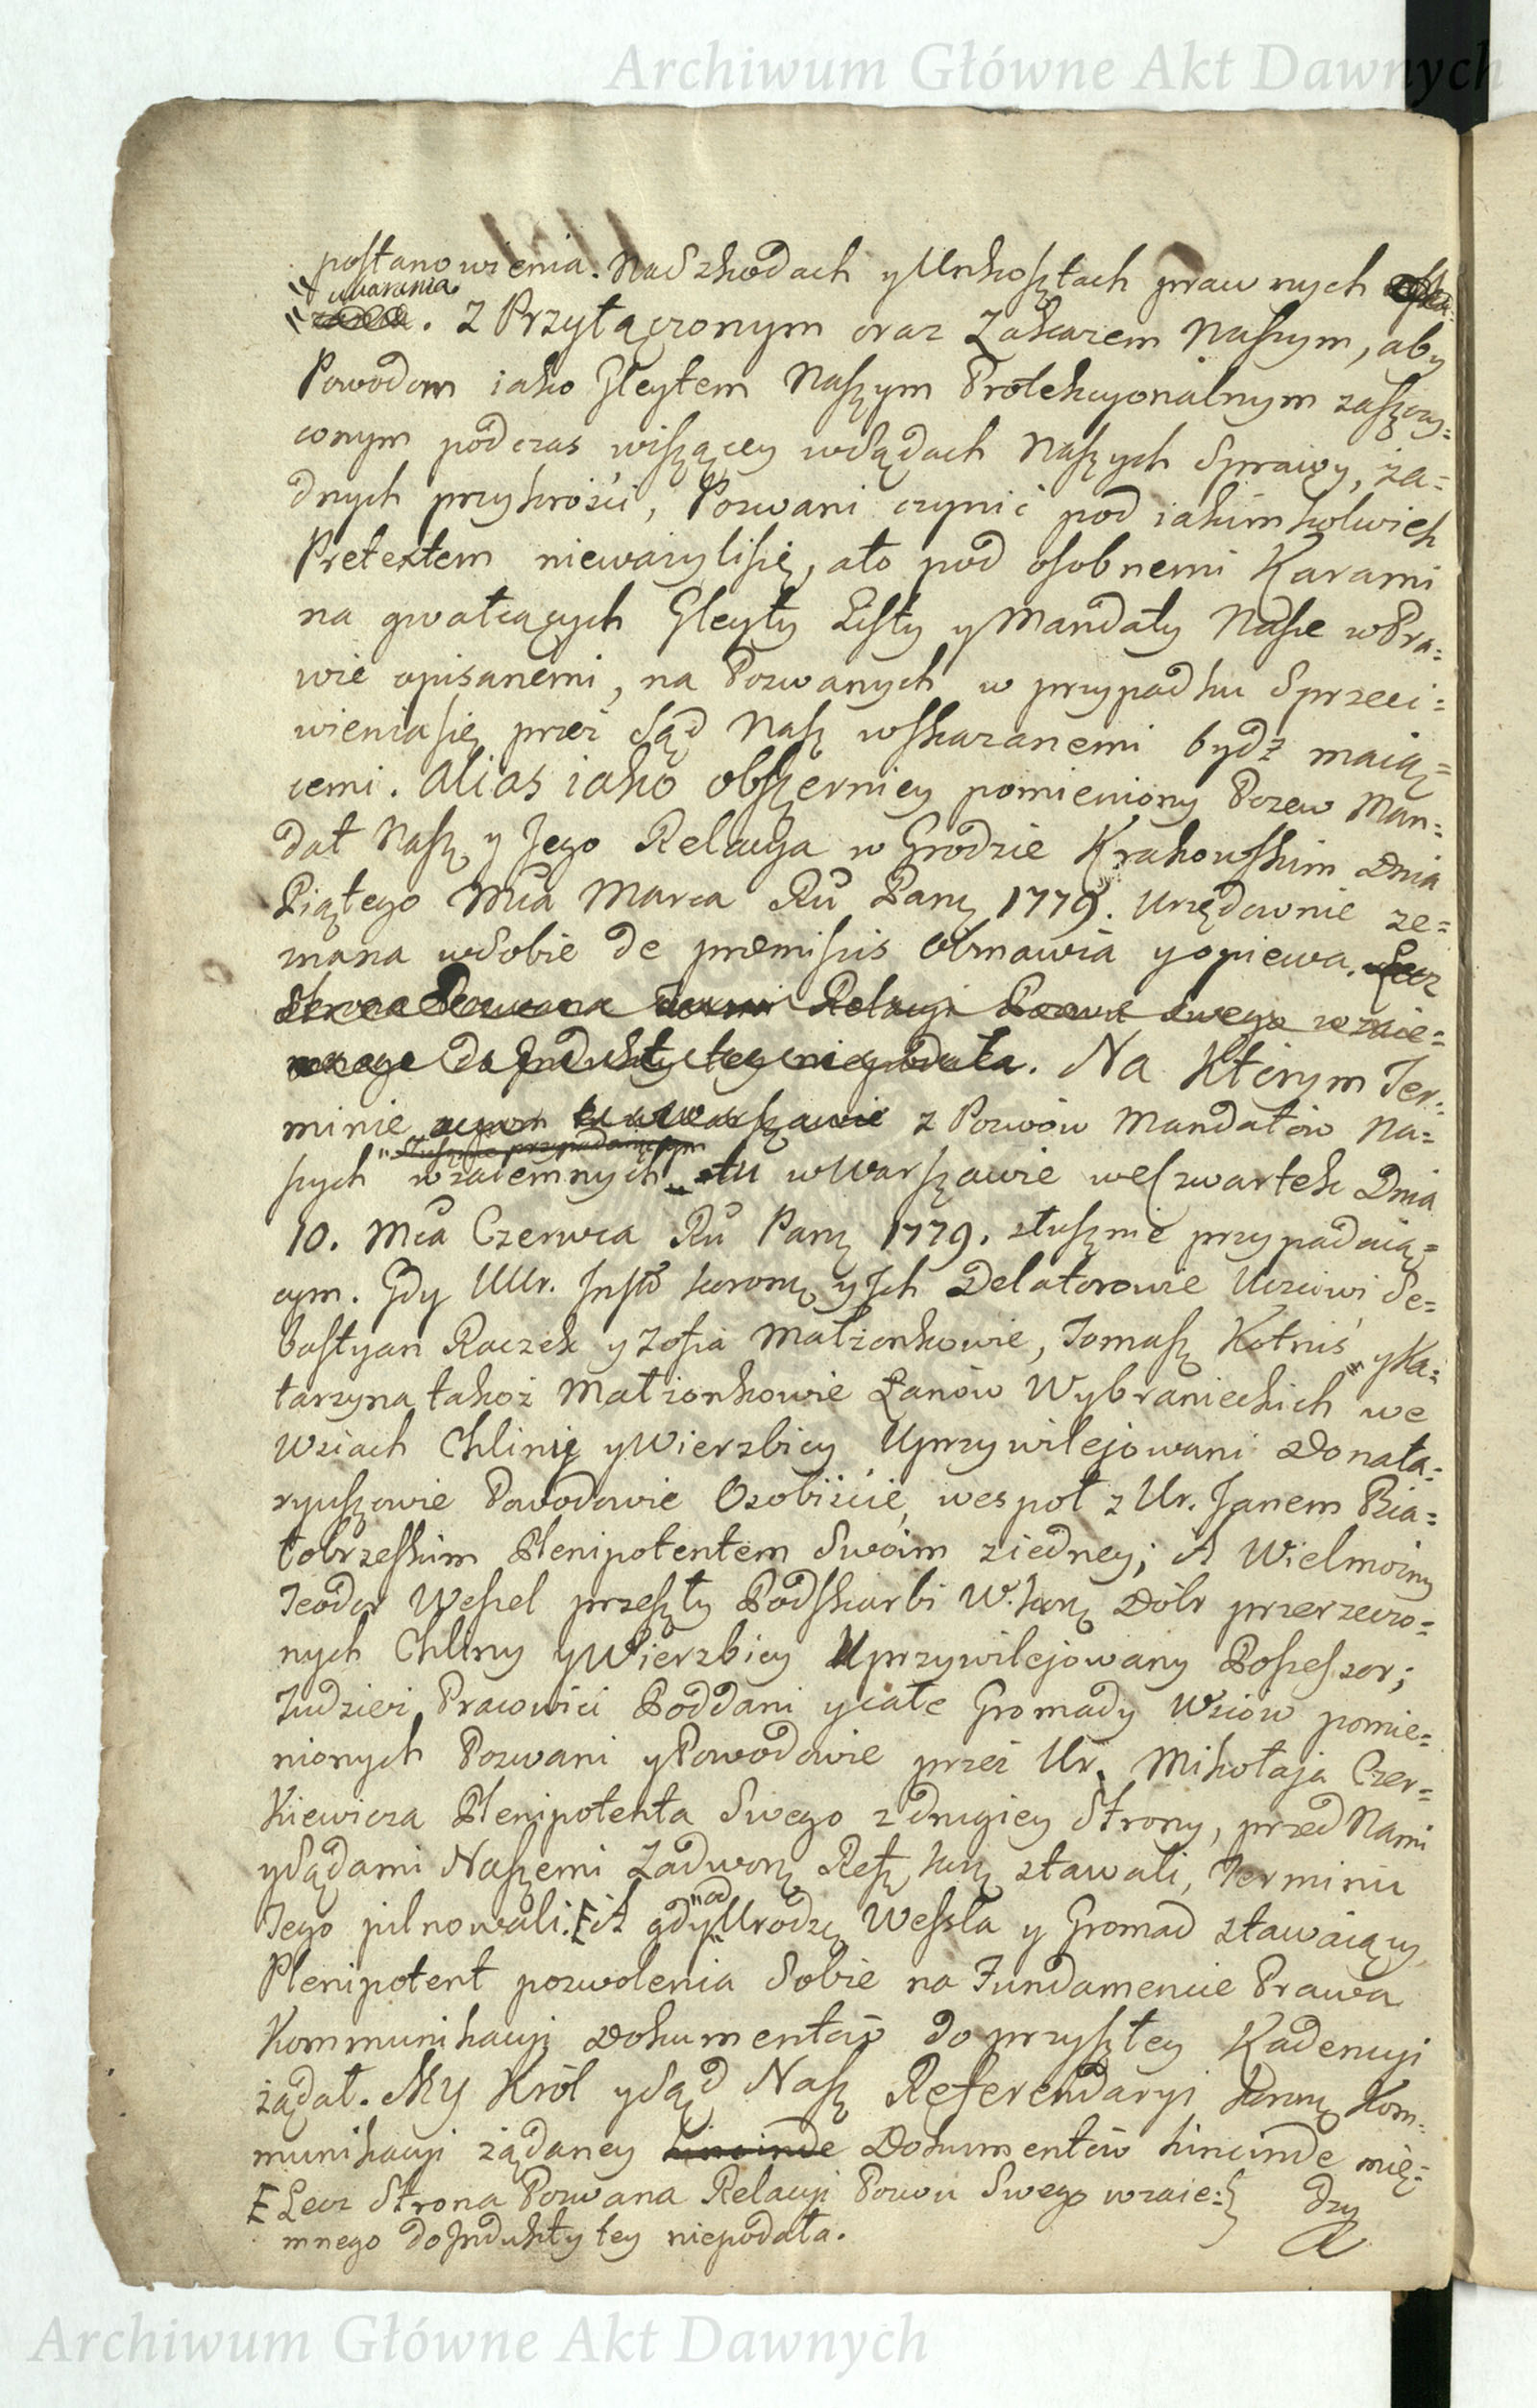 Archiwum Główne Akt Dawnych
postanowienia. Nad Szkodach y Unkosztach prawnych
uwarania
. Z Przyłączonym oraz Zakazem Naszym, aby
Powodom iako Gleytem Naszym Protekcyonalnym zaszczy=
conym podczas wiszącey w Sądach Naszych Sprawy, ża=
dnych przykrości, Pozwani czynić pod iakimkolwiek
Pretextem nieważylisię, a to pod osobnemi Karami
na gwałcących Gleyty Listy y Mandaty Nasze w Pra=
wie opisanemi, na Pozwanych w przypadku Sprzeci=
wieniasię przez Sąd Nasz wskazanemi bydź maią=
cemi. Alias iako obszerniey pomieniony Pozew Man=
dat Nasz y Jego Relacya w Grodzie Krakowskim Dnia
Piątego Mca Marca Ru Pań 1779. Urzędownie ze=
znana w Sobie de præmissis obmawia y opiewa. Lecz
Strona Pozwana Relacyi Pozwu Swego wzaie=
mnego do Indukty tey niepodała. Na Którym Ter=
minie z Pozwów Mandatów Na=
słusznie przypadaiącym
szych wzaiemnych tu w Warszawie we Czwartek Dnia
10. Mca Czerwca Ru Pań 1779. słusznie przypadaią=
cym. Gdy UUr. Insti Koronę y Ich Delatorowie Uczciwi Se=
bastyan Raczek y Zofia Małżonkowie, Tomasz Kotniś y Ka=
tarzyna takoż Małżonkowie Łanów Wybranieckich we
Wsiach Chlinie y Wierzbicy Uprzywilejowani Donata=
ryuszowie Powodowie Osobiście, wespoł z Ur. Janem Bia=
łobrzeskim Plenipotentem Swoim ziedney; A Wielmożny
Teodor Wessel przeszły Podskarbi W. Korę Dóbr przerzeczo=
nych Chliny y Wierzbicy Uprzywilejowany Possessor;
Tudzież Pracowici Poddani y całe Gromady Wsiów pomie=
nionych Pozwani y Powodowie przez Ur. Mikołaja Czer=
kiewicza Plenipotenta Swego z drugiey Strony, przed Nami
y Sądami Naszemi Zadworę Refę Korę stawali, Terminu
Tego pilnowali. A gdy od Urodzę Wessla y Gromad stawaiący
Plenipotent pozwolenia Sobie na Fundamencie Prawa
Kommunikacyi Dokumentów do przyszłey Kadencyi
żądał. My Król y Sąd Nasz Referendaryi Koronę Kom=
munikacyi żądaney hincinde Dokumentów hincinde mię=
dzy
Lecz Strona Pozwana Relacyi Pozwu Swego wzaie=
mnego do Indukty tey niepodała.
Archiwum Główne Akt Dawnych